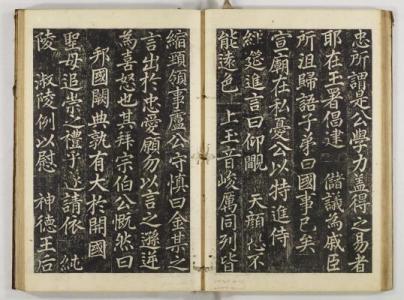 忠所謂是公學力盖得之易者
耶在玉署倡建 儲議為戚臣
所沮歸語子弟曰國事已矣
宣廟在私憂公以特進侍
經筵進言曰仰 天顔恐不
能遠色 上玉音峻厲同列皆
縮頸領事盧公守慎曰金某之
言出於忠愛願勿以言之遜逆
為喜怒也其拜宗伯公慨然曰
邦國闕典孰有大於開國
聖母追崇之禮乎遂請依 純
陵 淑陵例以慰 神德王后